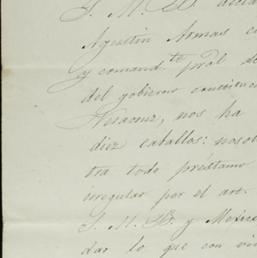 S. M. B. decla
Agustin Armas c
y comand.te pral de
del gobierno
Veracruz, nos ha
diez caballos: noso
tra todo préstamo
irregular por el art.
S. M. B. y Mexico
dar lo que con vi